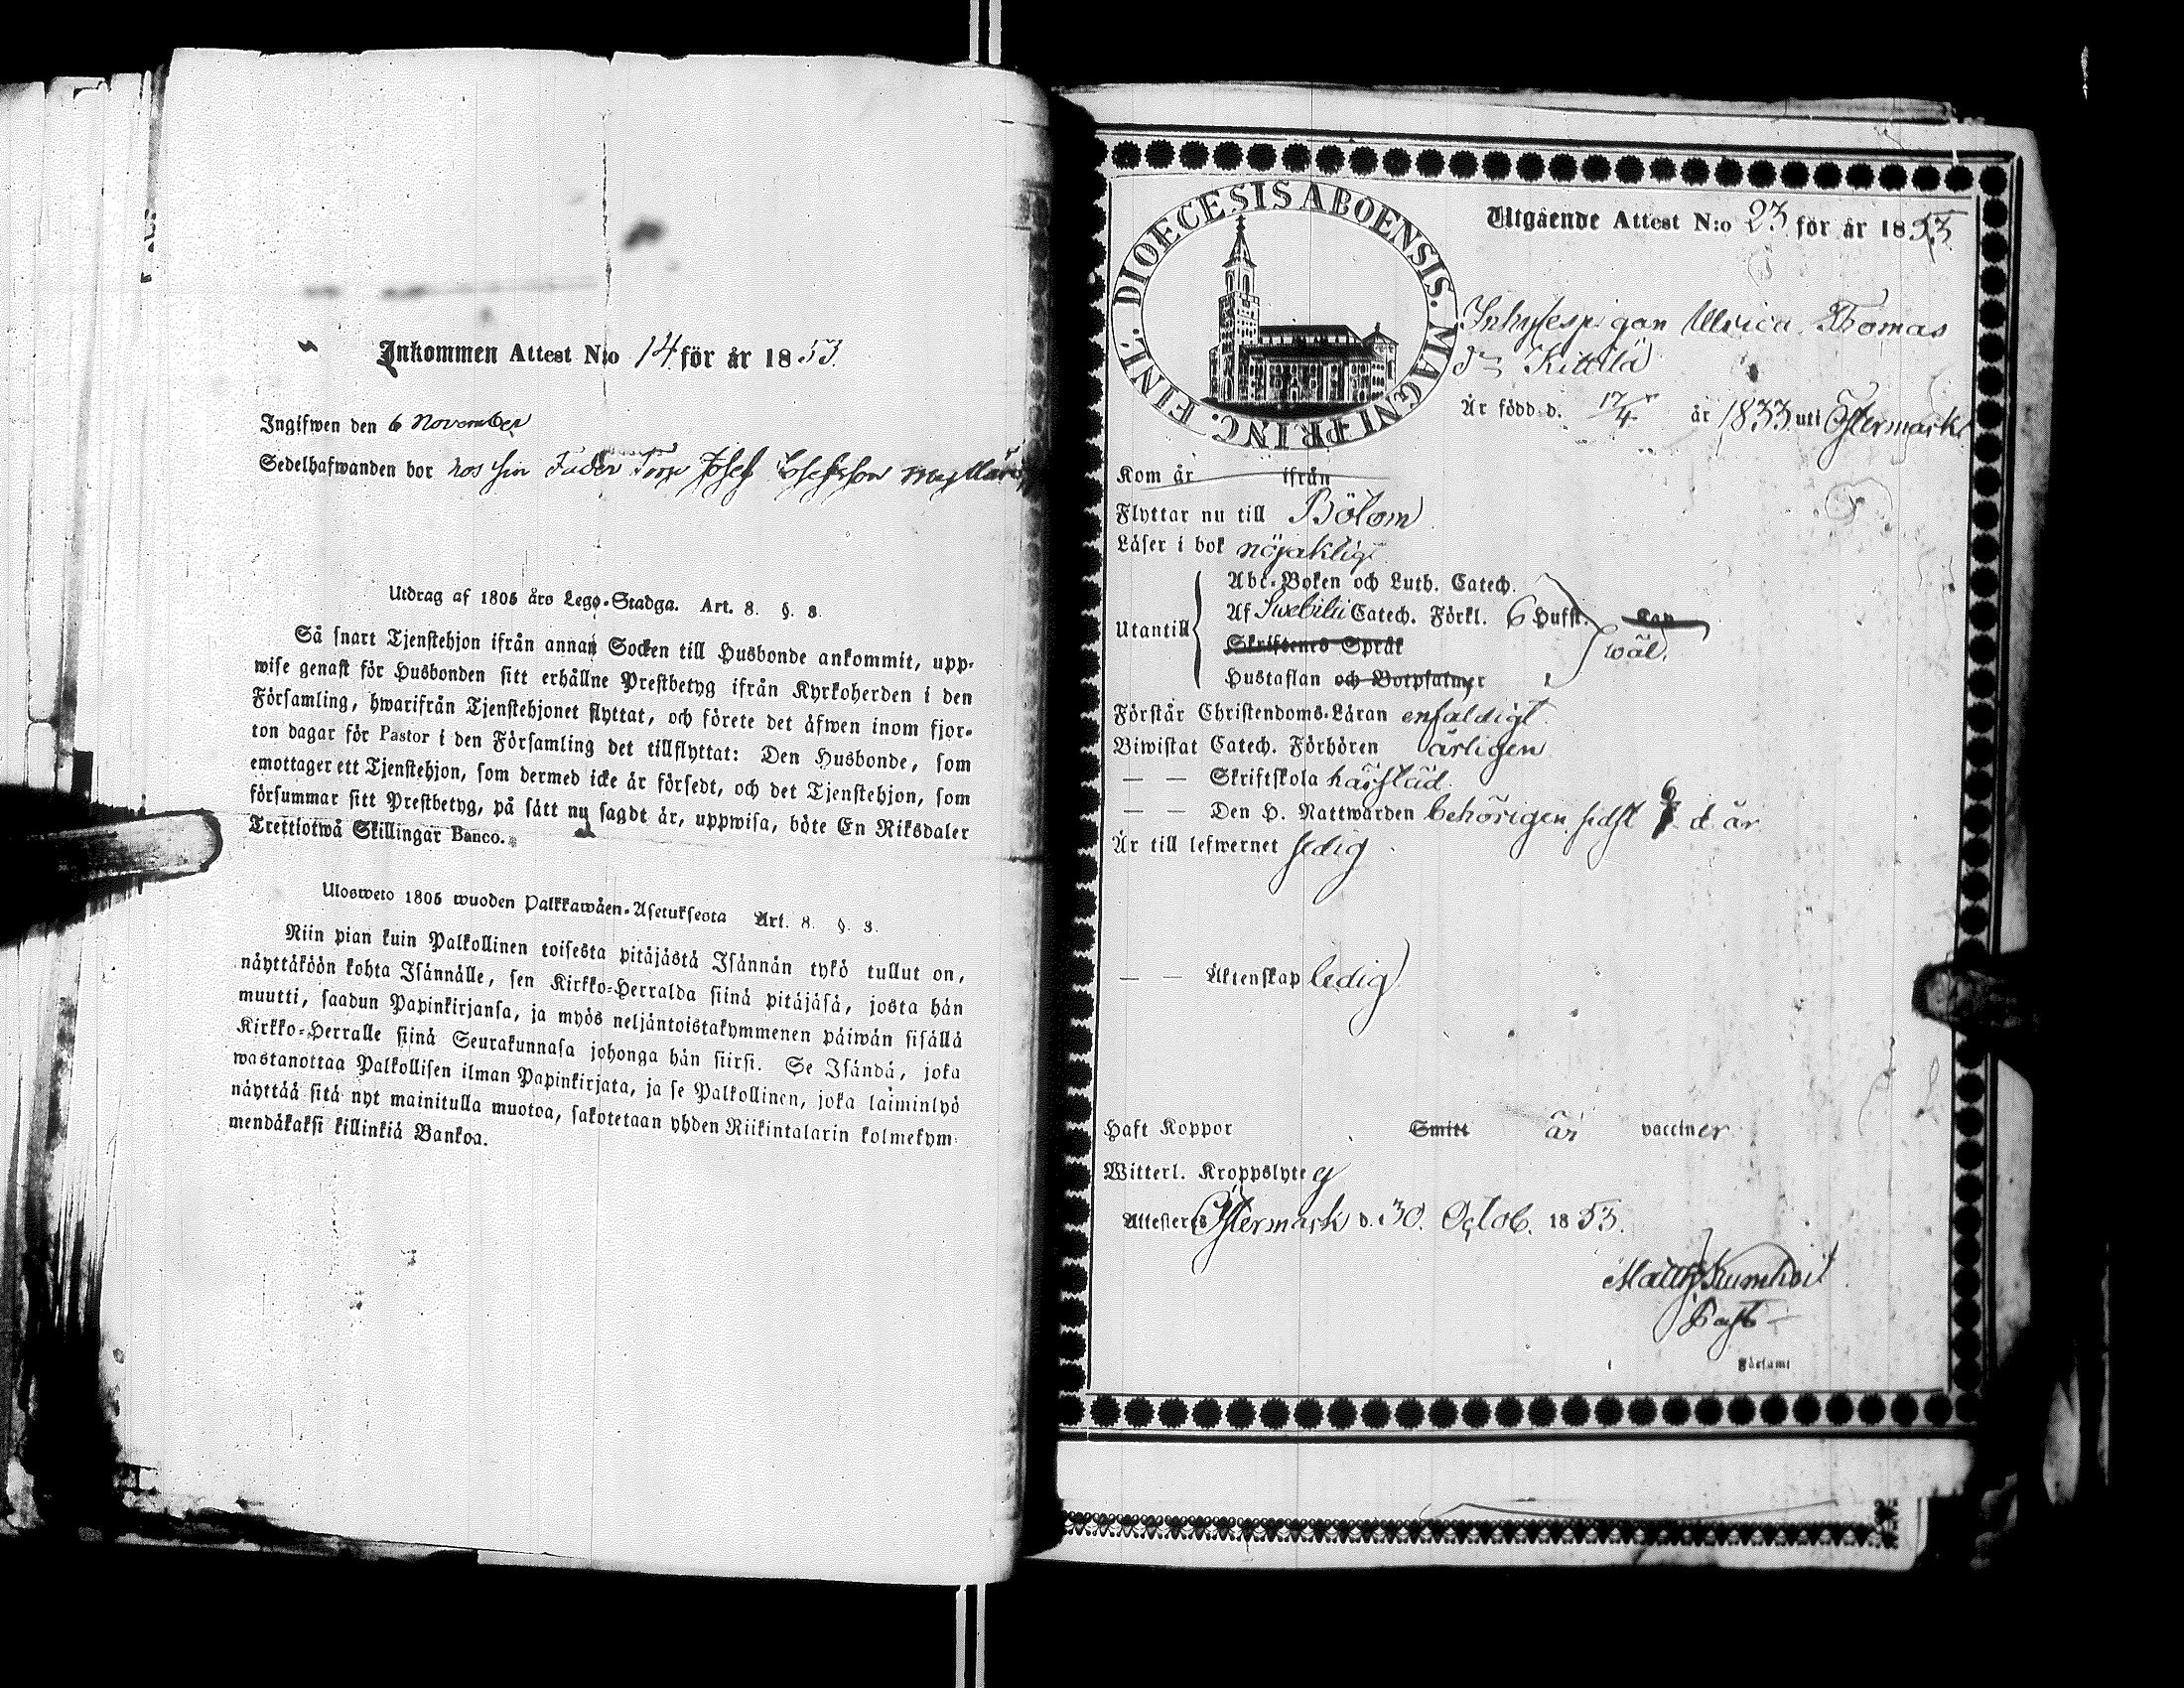 Inkommen Attest N:o 14 för år 1853.
Ingifwen den 6 November
Sedelhafwanden bor hos sin Fader Torp Josef Josefsson
Utdrag af 1805 års Lego-Stadga. Art. 8. §. 3.
Så snart Tjenstehjon ifrån annan Socken till Husbonde ankommit, upp-
wise genast för Husbonden sitt erhållne Prestbetyg ifrån Kyrkoherden i den
Församling, hwarifrån Tjenstehjonet flyttat, och förete det äfwen inom fjor-
ton dagar för Pastor i den Församling det tillflyttat: Den Husbonde, som
emottager ett Tjenstehjon, som dermed icke är försedt, och det Tjenstehjon, som
försummar sitt Prestbetyg, på sätt nu sagdt är, uppwisa, böte En Riksdaler
Trettiotwå Skillingar Banco.
Ulosweto 1805 wuoden Palkkawäen-Asetuksesta Art. 8. §. 3.
Niin pian kuin Palkollinen toisesta pitäjästä Isännän tykö tullut on,
näyttäköön kohta Isännälle, sen Kirkko-Herralda siinä pitäjäsä, josta hän
muutti, saadun Papinkirjansa, ja myös neljäntoistakymmenen päiwän sisällä
Kirkko-Herralle siinä Seurakunnasa johonga hän siirsi. Se Isändä, joka
wastanottaa Palkollisen ilman Papinkirjata, ja se Palkollinen, joka laiminlyö
näyttää sitä nyt mainitulla muotoa, sakotetaan yhden Riikintalarin kolmekym-
mendäkaksi killinkiä Bankoa.
DIOECESIS ABOENSIS. MAGNI PRINC. FINL.
Utgående Attest N:o 23 för år 1853.
Inhysespigan Ulrica Thomas
Kittilä
Är född d. 17/4 år 1833 uti Östermark
Kom år ifrån
Flyttar nu till Bötom
Läser i bok nöjaktigt
Utantill
Abc-Boken och Luth. Catech.
Af Swebilii Catech. Förkl. 6 Hufst. Cap
Skriftenes Språk
wäl.
Hustaflan och Botpsalmer
Förstår Christendoms-Läran enfaldigt.
Biwistat Catech. Förhören årligen
— — Skriftskola härstäd.
— — Den H. Nattwarden behörigen sidst d. år
Är till lefwernet sedig
— — Äktenskap ledig
Haft Koppor Smitt är vacciner
Witterl. Kroppslyte ej
Attesteras Östermark d. 30. Octob. 1853.
Past
Församl